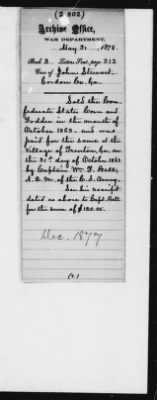 (2 602)
Archive Office,
WAR DEPARTMENT,
May 31, 1878.
Book 3 Letters Sent, page 313
Case of John Stewart
Gordon Co. Ga.
Sold the Con-
federate States Corn and
Fodder in the month of
October 1863 and was
paid for the same at the
Village of Trenton, Ga. on
the 31st day of October 1863
by Captain Wm. F.
A. Q. M. of the C. S. Army.
See his receipt
dated as above to Capt.
for the sum of $120.00.
Dec. 1877